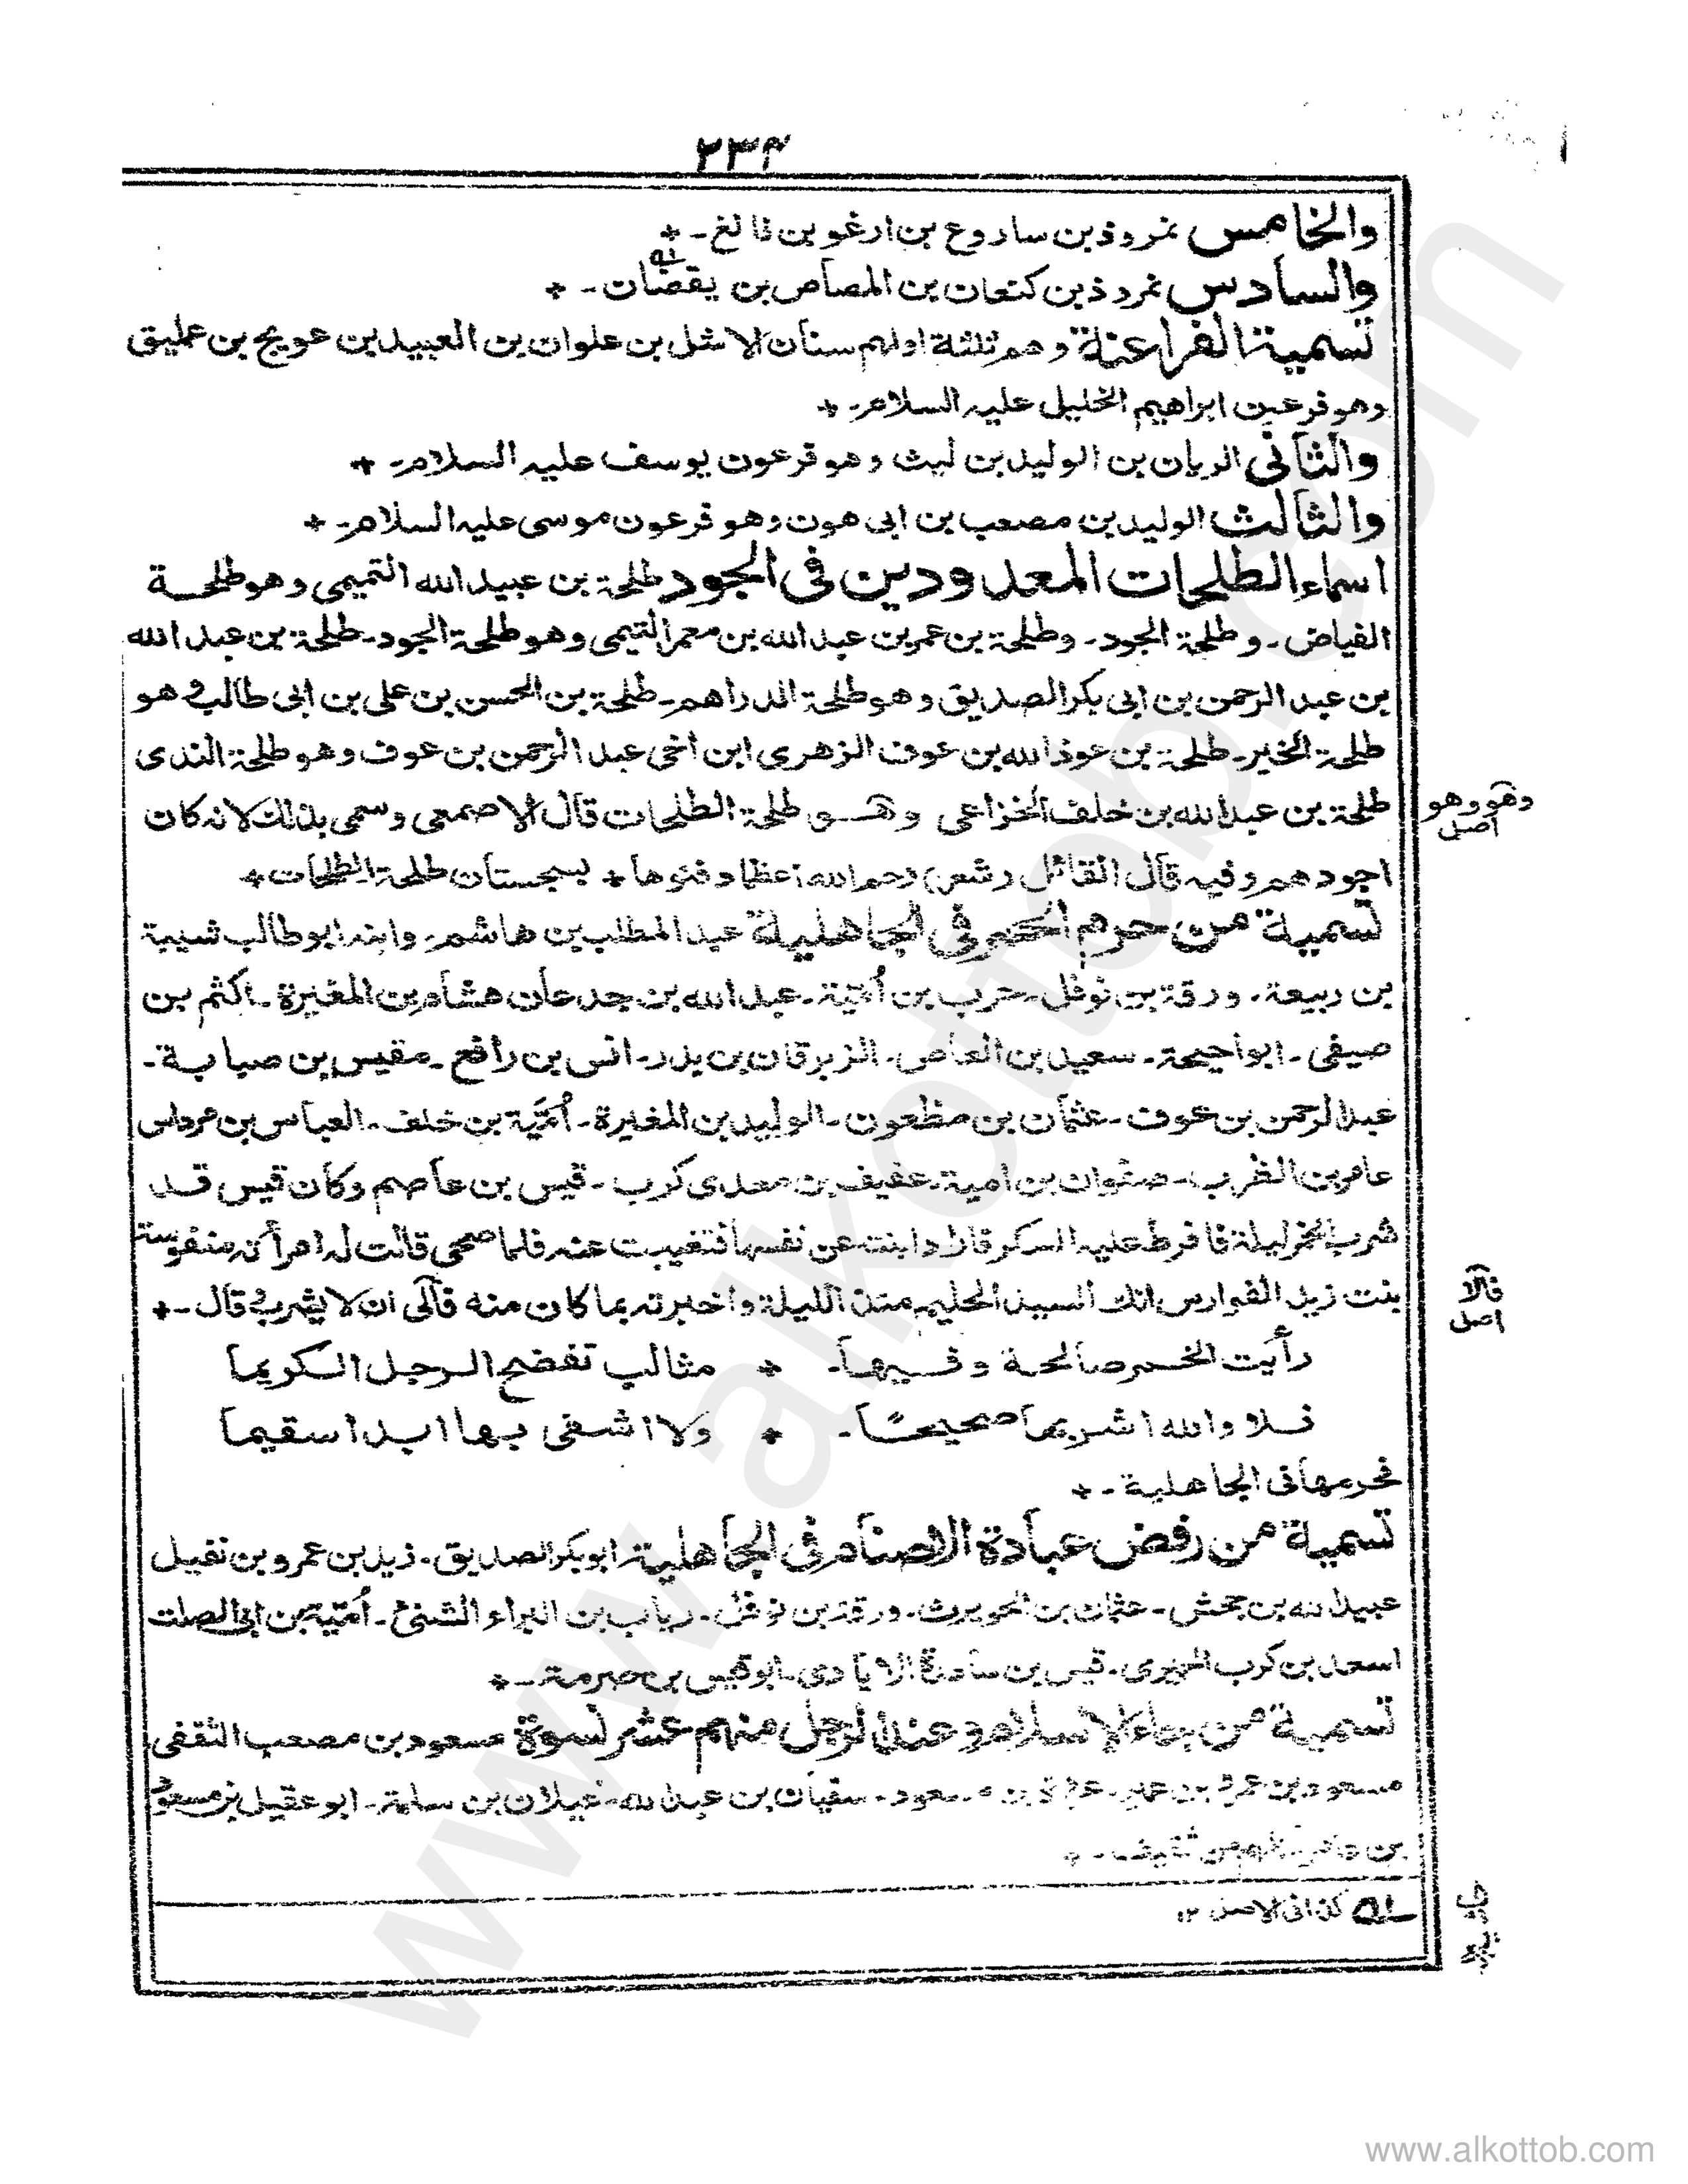 ٢٣٤
والخامس نمروذ بن ساروع بن ارغو بن فالغ ـ +
والسادس نمروذ بن كنعان بن المصاص بن يقضان ـ +
تسمية الفراعنة وهم ثلثة اولهم سنان الاشل بن علوان بن العبيد بن عويج بن عمليق
وهو فرعون ابراهيم الخليل عليه السلام ـ +
والثاني الريان بن الوليد بن ليث وهو فرعون يوسف عليه السلام ـ +
والثالث الوليد بن مصعب بن ابى هون وهو فرعون موسى عليه السلام ـ +
اسماء الطلحات المعدودين في الجود طلحة بن عبيد الله التميمى وهو طلحة
الفياض ـ و طلحة الجود ـ وطلحة بن عمر بن عبد الله بن معمر التيمى وهو طلحة الجود ـ طلحة بن عبد الله
بن عبد الرحمن بن ابى بكر الصديق وهو طلحة الدراهم ـ طلحة بن الحسن بن على بن ابى طالب و هو
طلحة الخير ـ طلحة بن عوذ الله بن عوف الزهرى ابن اخى عبد الرحمن بن عوف وهو طلحة الندى
طلحة بن عبد الله بن خلف الخزاعى وهو طلحة الطلحات قال الاصمعى وسمى بذلك لانه كان
وهو وهو
اصل
اجودهم وفيه قال القائل (شعر) رحم الله اعظما دفنوها + بسجستان طلحة الطلحات +
تسمية من حرم الخمر في الجاهلية عبد المطلب بن هاشم ـ وابنه ابو طالب شيبة
بن ربيعة ـ ورقة بن نوفل ـ حرب بن أمية ـ عبد الله بن جدعان هشام بن المغيرة ـ اكثم بن
صيفى ـ ابو احيحة ـ سعيد بن العاص ـ الزبرقان بن بدر ـ انس بن رافع ـ مقيس بن صبابة ـ
عبد الرحمن بن عوف ـ عثمان بن مظعون ـ الوليد بن المغيرة ـ أمية بن خلف ـ العباس بن مرداس
عامر بن الظرب ـ صفوان بن امية ـ عفيف بن معدى كرب ـ قيس بن عاصم وكان قيس قد
شرب الخمر ليلة فافرط عليه السكر فاراد ابنته عن نفسها فتغيبت عنه فلما صحى قالت له امرأته منفوسة
بنت زيد الفوارس انك السيد الحليم منذ الليلة واخبرته بما كان منه فآلى ان لا يشرب و قال ـ +
فالا
اصل
رأيت الخمر صالحة وفيها ـ + مثالب تفضح الرجل الكريما
فلا والله اشربها صحيحًا ـ + ولا اشفى بها ابدا سقيما
فحرمها فى الجاهلية ـ +
تسمية من رفض عبادة الاصنام في الجاهلية ابو بكر الصديق ـ زيد بن عمرو بن نفيل
عبيد الله بن جحش ـ عثمان بن الحويرث ـ ورقة بن نوفل ـ رباب بن البراء الشنى ـ أمية بن ابى الصلت
اسعد بن كرب الحميرى ـ قيس بن ساعدة الايادى ـ ابو قيس بن صرمة ـ +
تسمية من جاء الاسلام و عند الرجل منهم عشر نسوة مسعود بن مصعب الثقفى
مسعود بن عمرو بن عمير ـ عروة بن مسعود ـ سفيان بن عبد الله ـ غيلان بن سلمة ـ ابو عقيل بن مسعود
بن عامر كلهم من ثقيف ـ +
له كذا فى الاصل ١٢
www.alkottob.com